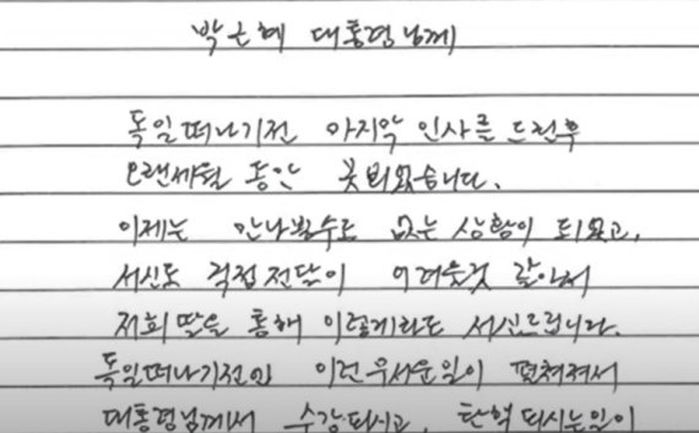 박근혜 대통령님께
독일떠나기전 마지막 인사를 드린후
오랜세월 동안 못뵈었습니다.
이제는 만나뵐수도 없는 상황이 되었고,
서신도 직접전달이 어려운것 같아서
저희 딸을 통해 이렇게라도 서신드립니다.
독일떠나기전만 이런무서운일이 펼쳐져서
대통령님께서 수감되시고, 탄핵되시는일이